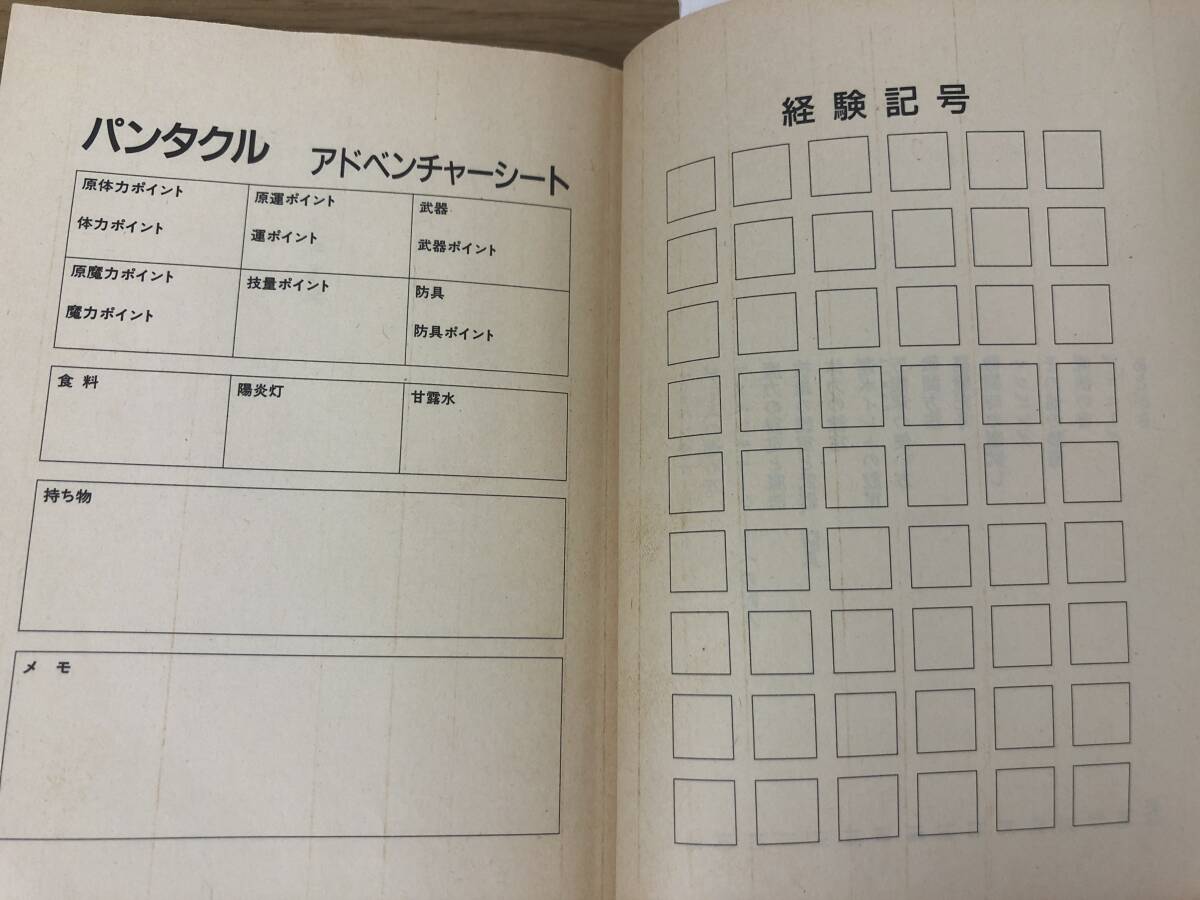 パンタクル アドベンチャーシート
原体力ポイント
体力ポイント
原運ポイント
運ポイント
武器
武器ポイント
原魔力ポイント
魔力ポイント
技量ポイント
防具
防具ポイント
食料
陽炎灯
甘露水
持ち物
メモ
経験記号